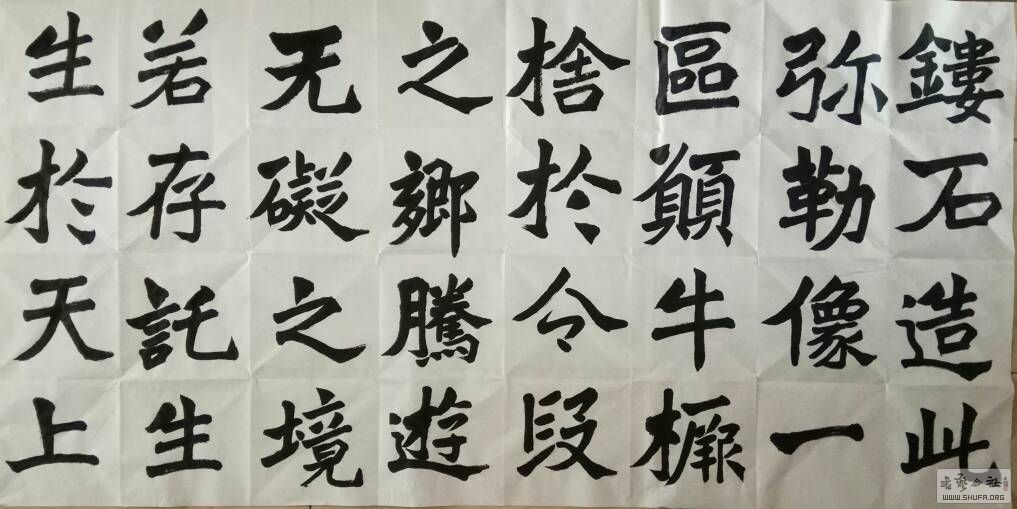 鏤石造此
弥勒像一
區願牛橛
捨於分段
之鄉騰遊
无礙之境
若存託生
生於天上
书艺公社
WWW.SHUFA.ORG